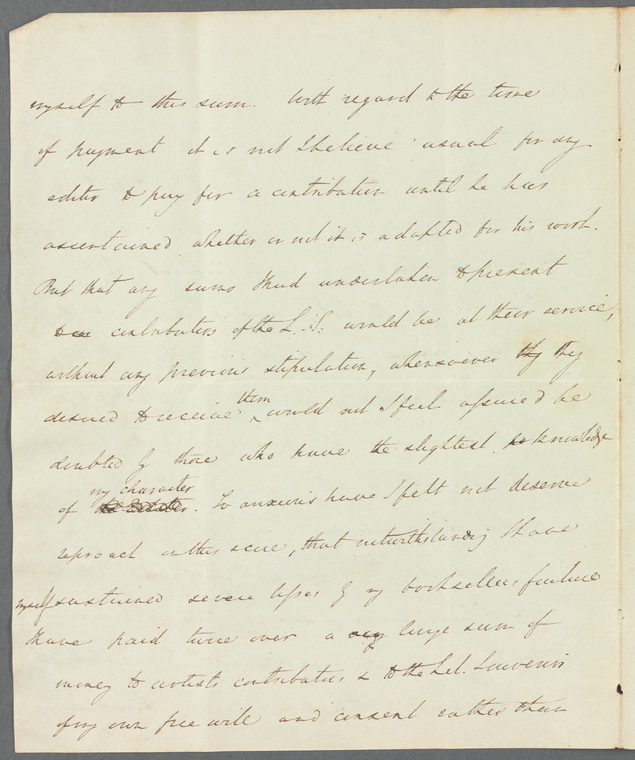 myself to this sum. With regard to the time
of payment it is not I believe usual for any
editor to pay for a contribution until he has
ascertained whether or not it is adapted for his work.
But that any sums I had undertaken to present
to contributors of the L. S: would be at their service,
without any previous stipulation, whensoever thy they
desired to receive them would not I feel assured be
doubted by those who have the slightest knowledge
of my character. So anxious have I felt not to deserve
reproach on this score, that notwithstanding I have
myself sustained severe losses by my booksellers failure
I have paid twice over a very large sum of
money to artists contributors & to the Lit. Souvenir
of my own free will and consent rather than